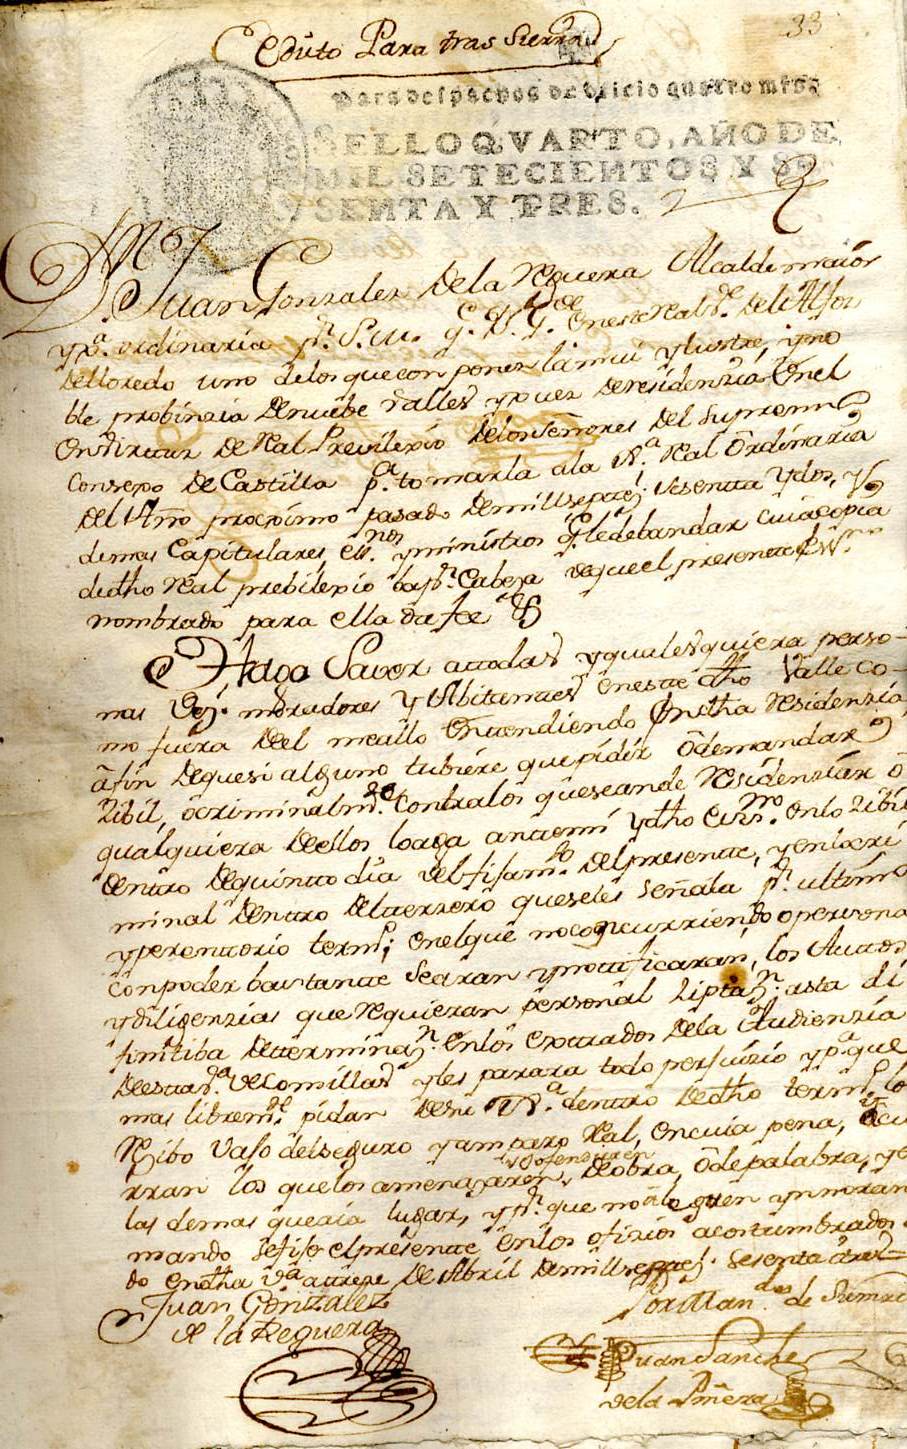 33
Edicto Para tras Sierra
Para despachos de oficio quatro mrs.
SELLO QVARTO, AÑO DE
MIL SETECIENTOS Y SE
SENTA Y TRES.
Dn. Juan Gonzalez de la Reguera Alcalde maior
y ordinaria pr. S. M. q. D. g. en este Real de del Alfoz
de lloredo uno de los que con ponen la mui ylustre, y no
ble probinzia de nuebe valles y juez de residenzia en el
en virtud de Real Previlexio de los Señores del Supremo
Consexo de Castilla pa. tomarla a la Real Ordinaria
del Año procximo pasado de mill septtes. sesentta y dos, y
demas Capitulares, essnos. y ministros q. le de bandar cuia copia
de dho Real prebilexio ba pr. Cabeza de que el presentte essno.
nombrado para ella da fee
Hago Saver a ttodas y qualesquiera perso-
nas Vezs. moradores y Abitanttes en estte dho Valle co-
mo fuera de el me allo enttendiendo en dha residenzia
a fin de que si alguno tubiere que pidir o demandar
Zibil, o criminalmte. contra los que se an de residenziar o
qualquiera de ellos lo aga antte mi y dho essno. en lo zibil
dentro de quintto dia del fijamto. del presentte, y en lo cri
minal dentro del terzero que se les señala pr. ultimo
y perenttorio termo. en el que no concurriendo o persona
con poder basttantte se aran y nottificaran, los Auttos
y dilixenzias que requieran personal ziptazn. asta di
finitiba determinazn. en los esttrados de la Audienzia
de esta va. de Comillas y les parara todo perjuizio y pa. que
mas libremte. pidan de su dentro de dho termo. lo
Rezibo vajo del seguro y amparo Real, en cuia pena, yncu
rran los que los amenazaren, y ofendieren de obra, o de palabra, y e
las demas que aia lugar, y pr. que no aleguen ynnoran
mando se fije el presentte en los sitios acostumbrados
do en dha va. a treze de Abril de mill septtes. sesenta y tres=
Juan Gonzalez
de la Reguera
Por Mandado de Su mrd
Juan Sanchez
de la